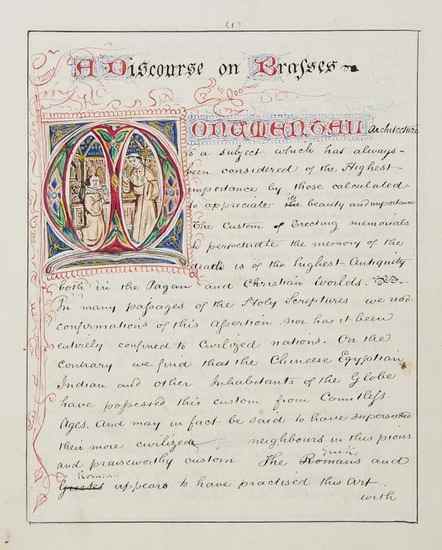 (1)
A Discourse on Brasses
MONUMENTAL Architecture
is a subject which has always
been considered of the Highest
importance by those calculated
to appreciate its beauty and importance
The Custom of Erecting memorials
to perpetuate the memory of the
is of the highest Antiquity
both in the Pagan and Christian Worlds.
In many passages of the Holy Scriptures we
confirmations of this Assertion nor has it been
entirely confined to Civilized nations. On the
contrary we find that the Chineese Egyptian
Indian and other Inhabitants of the Globe
have possessed this custom from Countless
Ages. And may in fact be said to have
their more civilized neighbours in this pious
and praiseworthy custom The Romans and
appears to have practised this Art
with